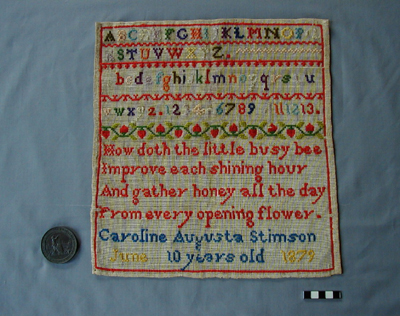 ABCDEFGHIJKLMNOP
STUVWXYZ.
bcdefghijklmnopqrstu
vwxyz.12345678910111213.
How doth the little busy bee
Improve each shining hour
And gather honey all the day
From every opening flower.
Caroline Augusta Stimson
June 10 years old 1879